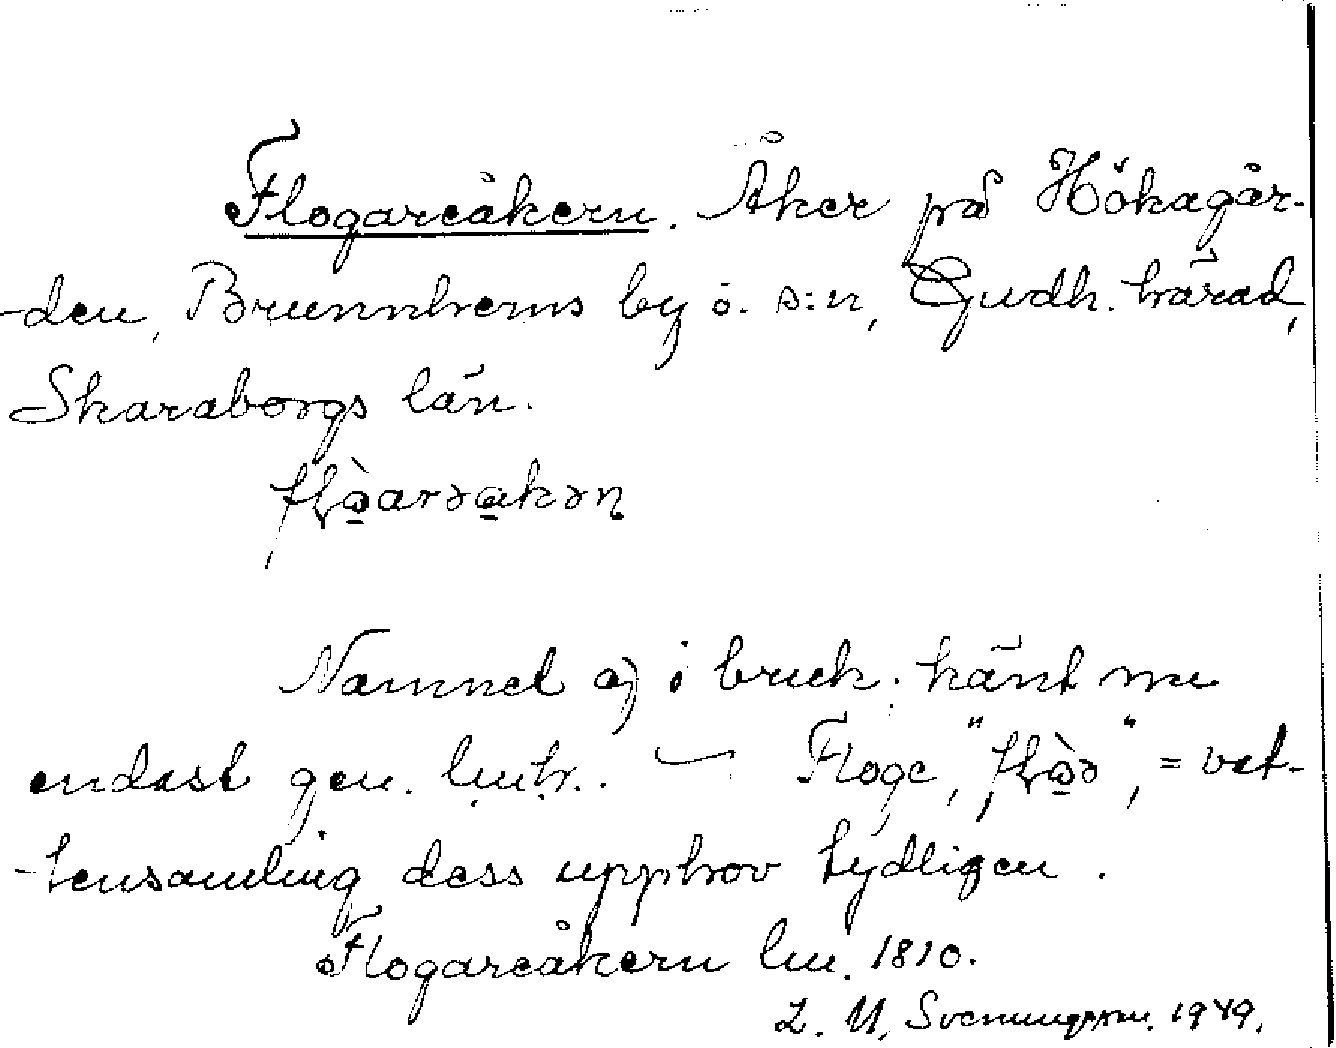 Flogareåkern. Åker på Hökagår-
-den, Brunnhems by o. s:n, Gudh. härad,
Skaraborgs län.
Namnet ej i bruk. känt nu
endast gen. lmtr. — Floge, = vat-
-tensamling dess upphov tydligen.
Flogareåkern lm. 1810.
L. M. Svenungsson. 1949.